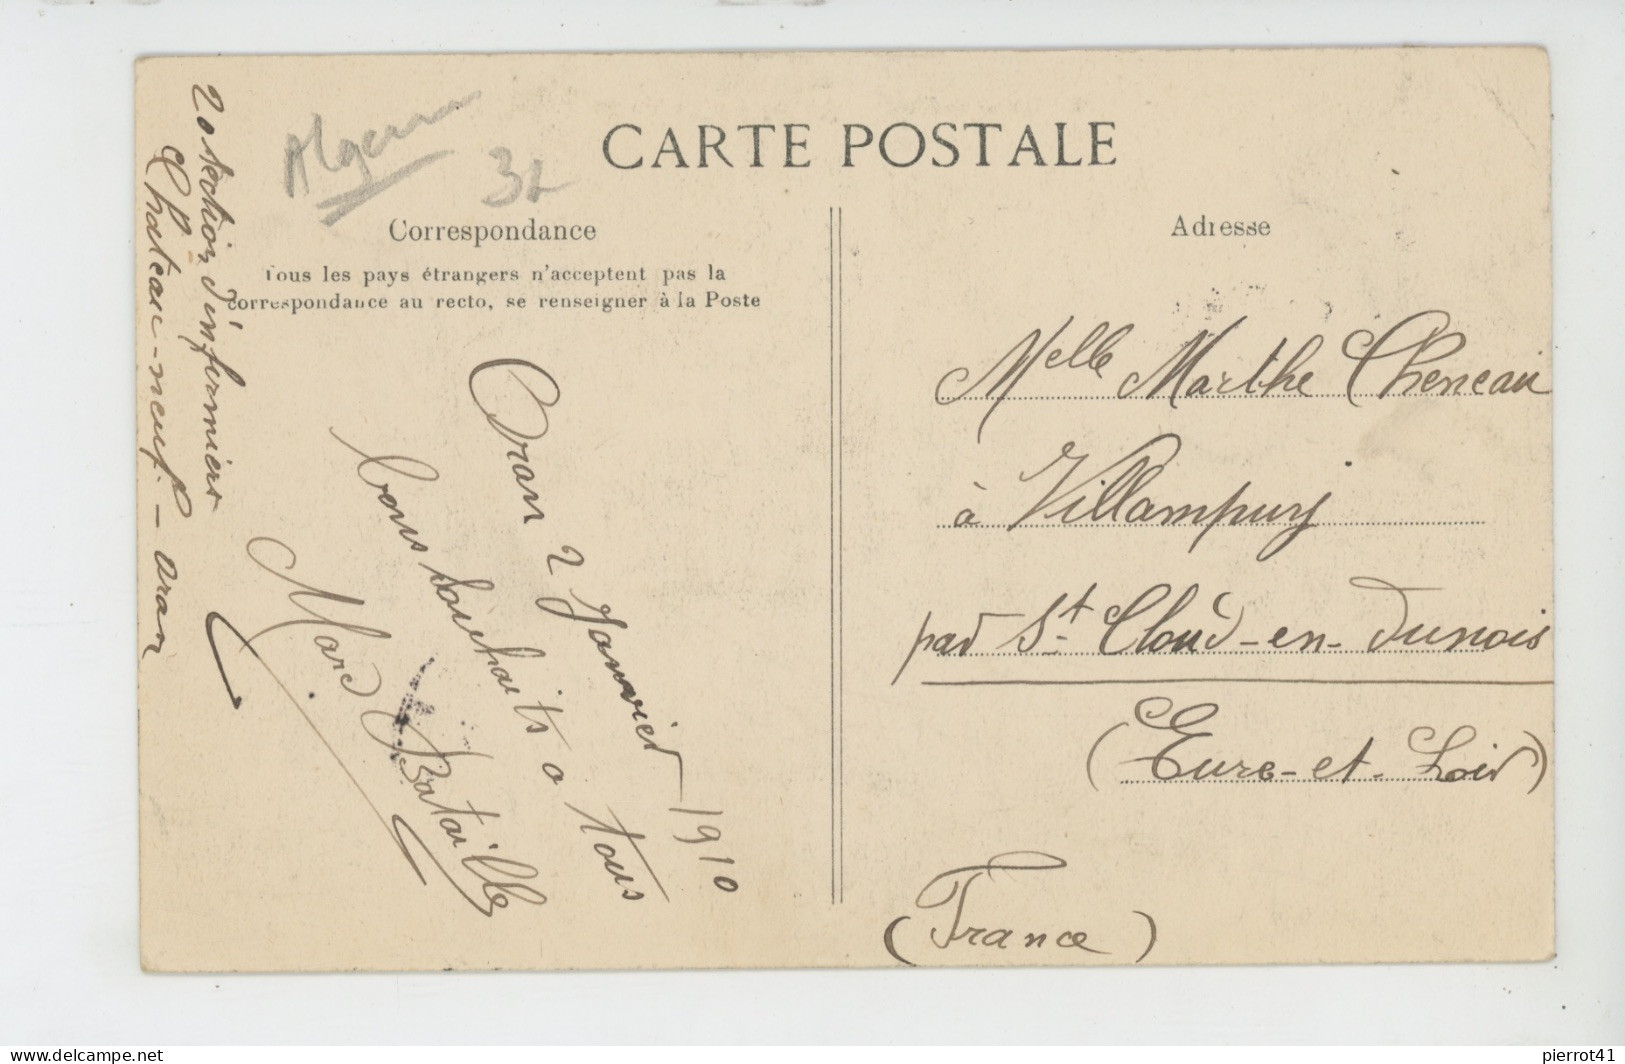 CARTE POSTALE
Correspondance
Tous les pays étrangers n'acceptent pas la
correspondance au recto, se renseigner à la Poste
Adresse
32
20 section d'infirmiers
Chateau-neuf - oran
Oran 2 Janvier 1910
bons souhaits a tous
Marc Bataille
Melle Marthe Cheneau
à Villampuy
par St. Cloud-en-Dunois
(Eure-et-Loir)
(France)
delcampe.net
pierrot41